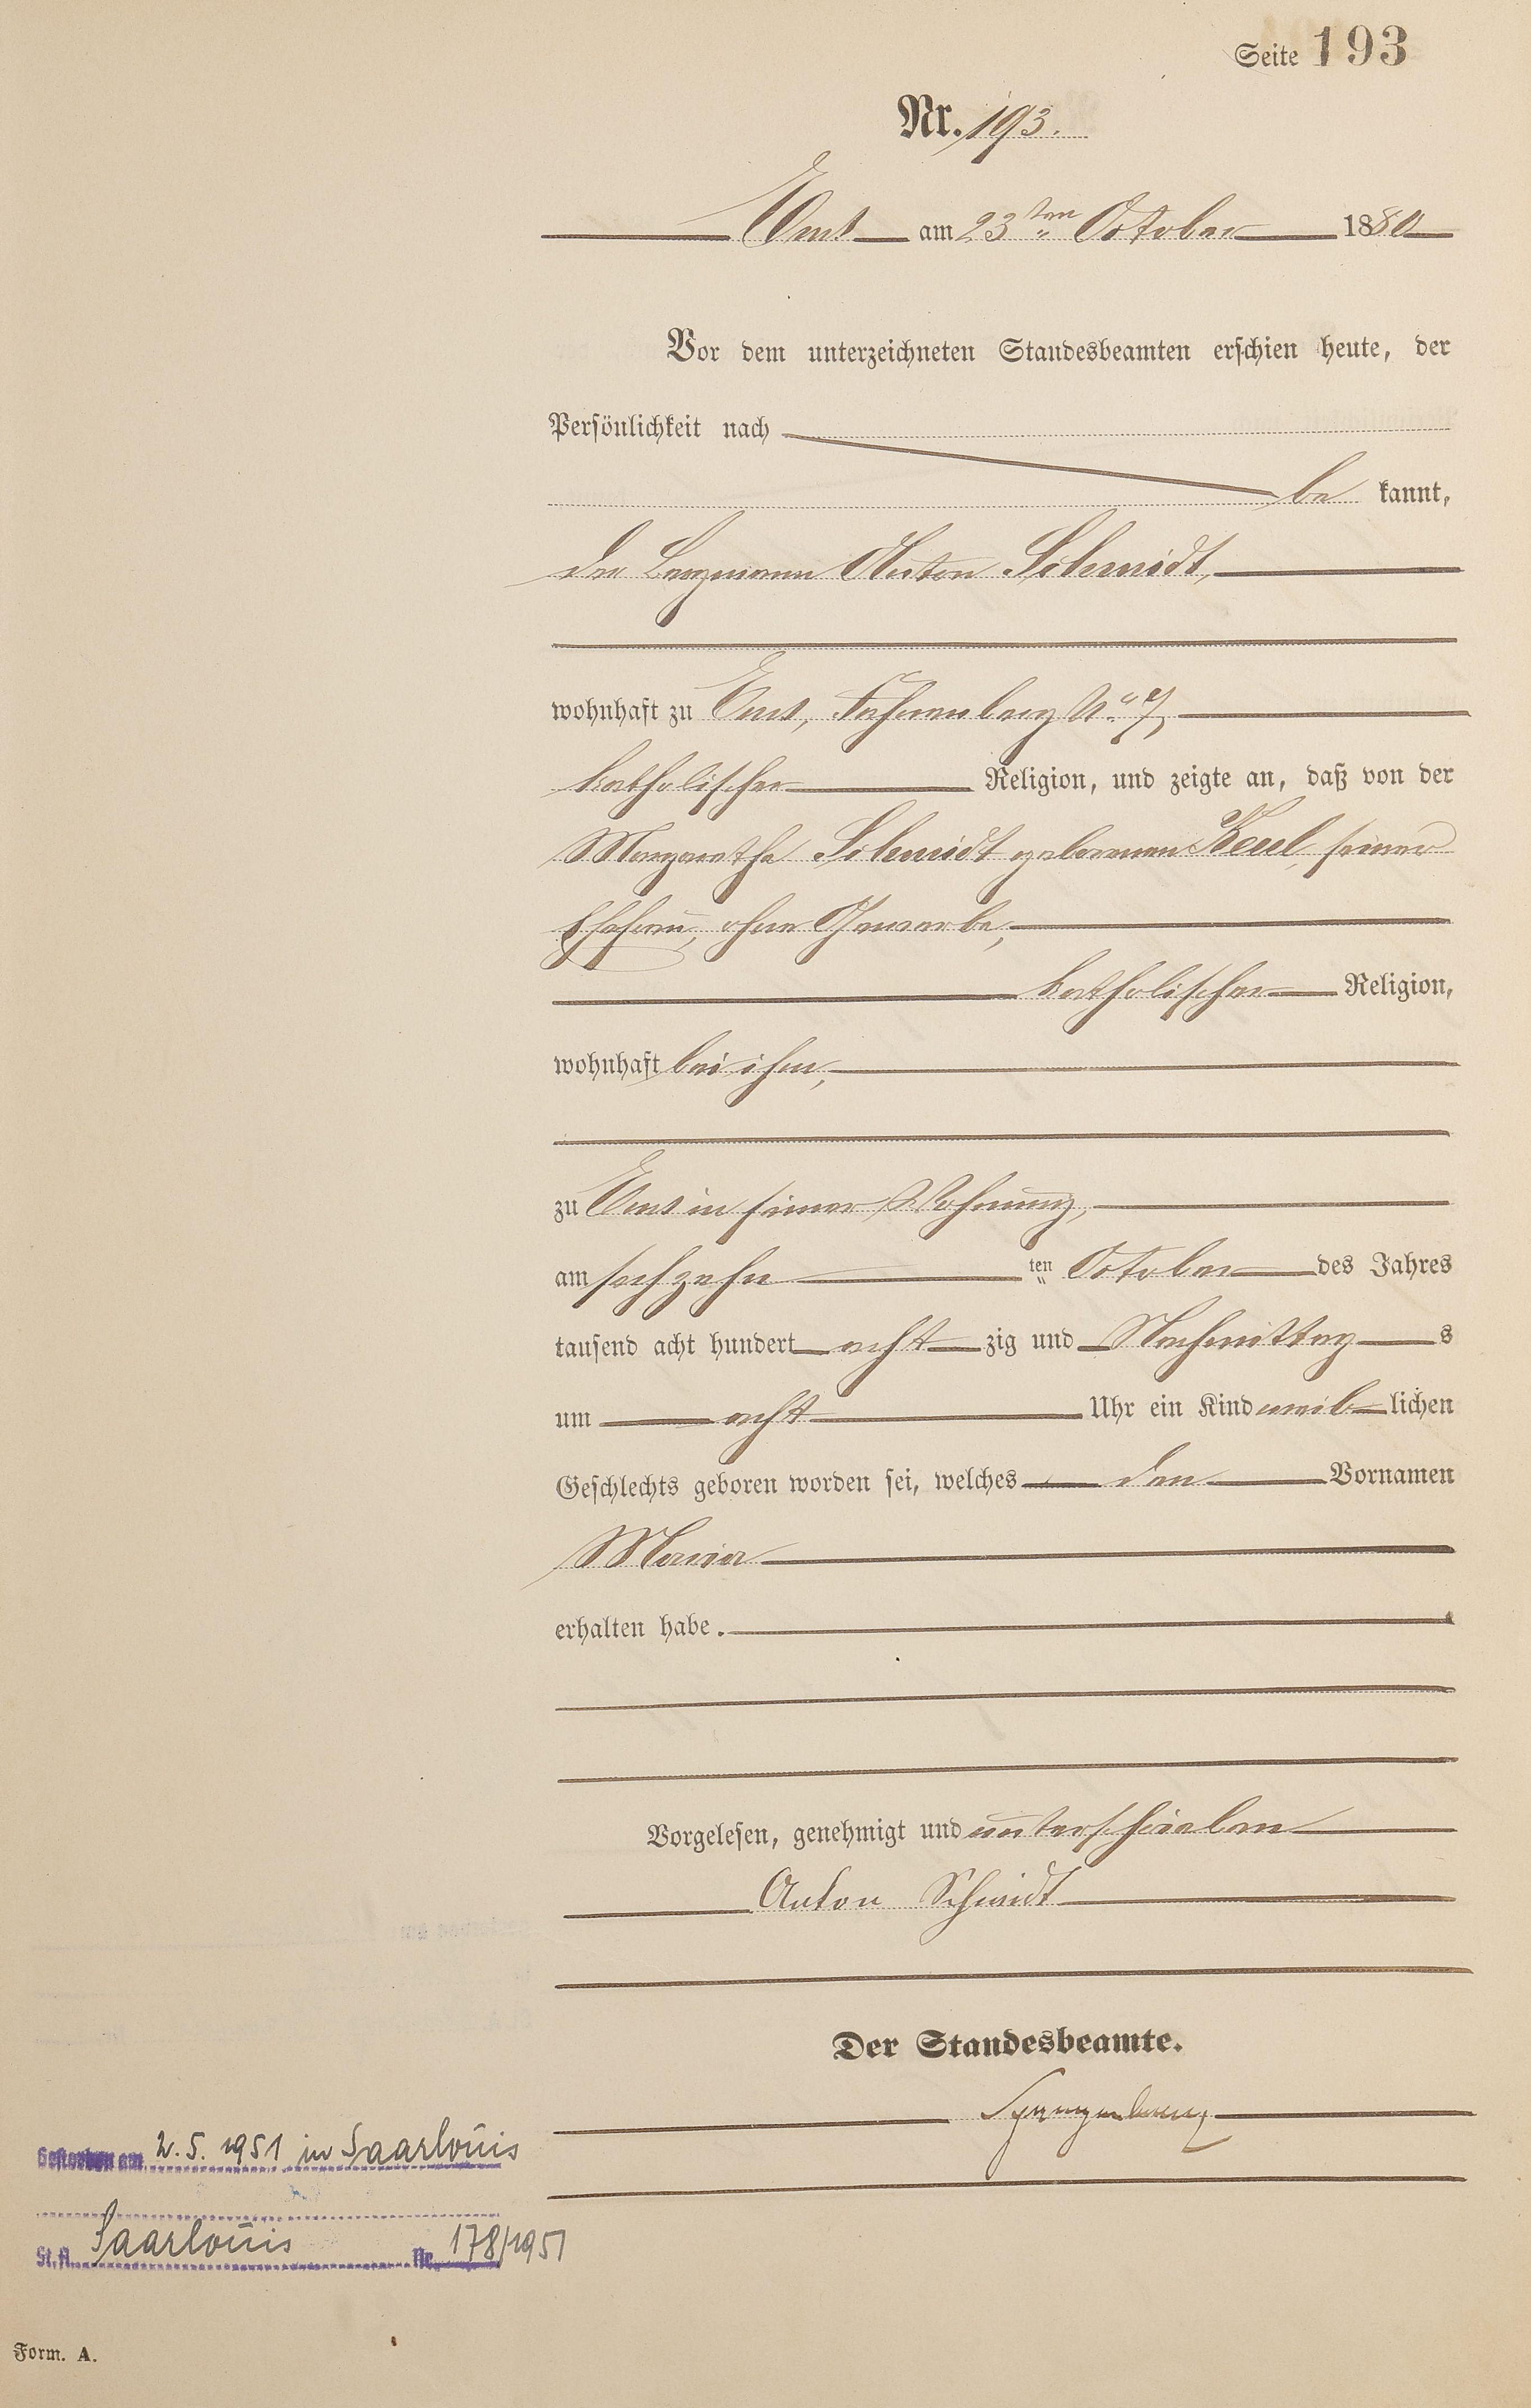 Seite 193
Nr. 193.
Ems am 23ten October 1880
Vor dem unterzeichneten Standesbeamten erschien heute, der
Persönlichkeit nach
be kannt,
der Bergmann Anton Schmidt,
wohnhaft zu Ems, No 7,
katholischer Religion, und zeigte an, daß von der
Margaretha Schmidt geborenen Keul, seiner
Ehefrau, ohne Gewerbe,
katholischer Religion,
wohnhaft bei ihm,
zu Ems in seiner Wohnung,
am sechzehn ten October des Jahres
tausend acht hundert acht zig und Nachmittag s
um acht Uhr ein Kind weib lichen
Geschlechts geboren worden sei, welches den Vornamen
Maria
erhalten habe.
Vorgelesen, genehmigt und unterschrieben
Anton Schmidt
Der Standesbeamte.
Spangenberg
Gestorben am 2.5.1951 in Saarlouis
St.A. Saarlouis Nr. 178/1951
Form. A.